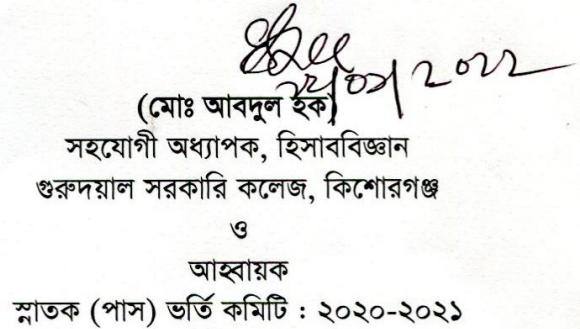 (মোঃ আবদুল হক)
সহযোগী অধ্যাপক, হিসাববিজ্ঞান
গুরুদয়াল সরকারি কলেজ, কিশোরগঞ্জ
ও
আহ্বায়ক
স্নাতক (পাস) ভর্তি কমিটি : ২০২০-২০২১